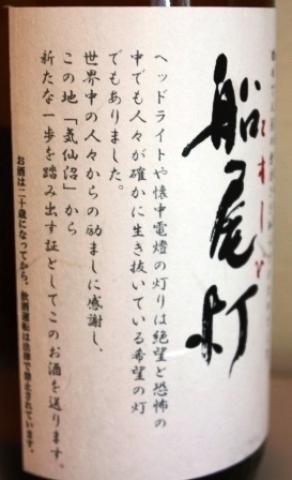 船尾灯
ともしび
ヘッドライトや懐中電燈の灯りは絶望と恐怖の
中でも人々が確かに生き抜いている希望の灯
でもありました。
世界中の人々からの励ましに感謝し、
この地「気仙沼」から
新たな一歩を踏み出す証としてこのお酒を送ります。
お酒は二十歳になってから。飲酒運転は法律で禁止されています。